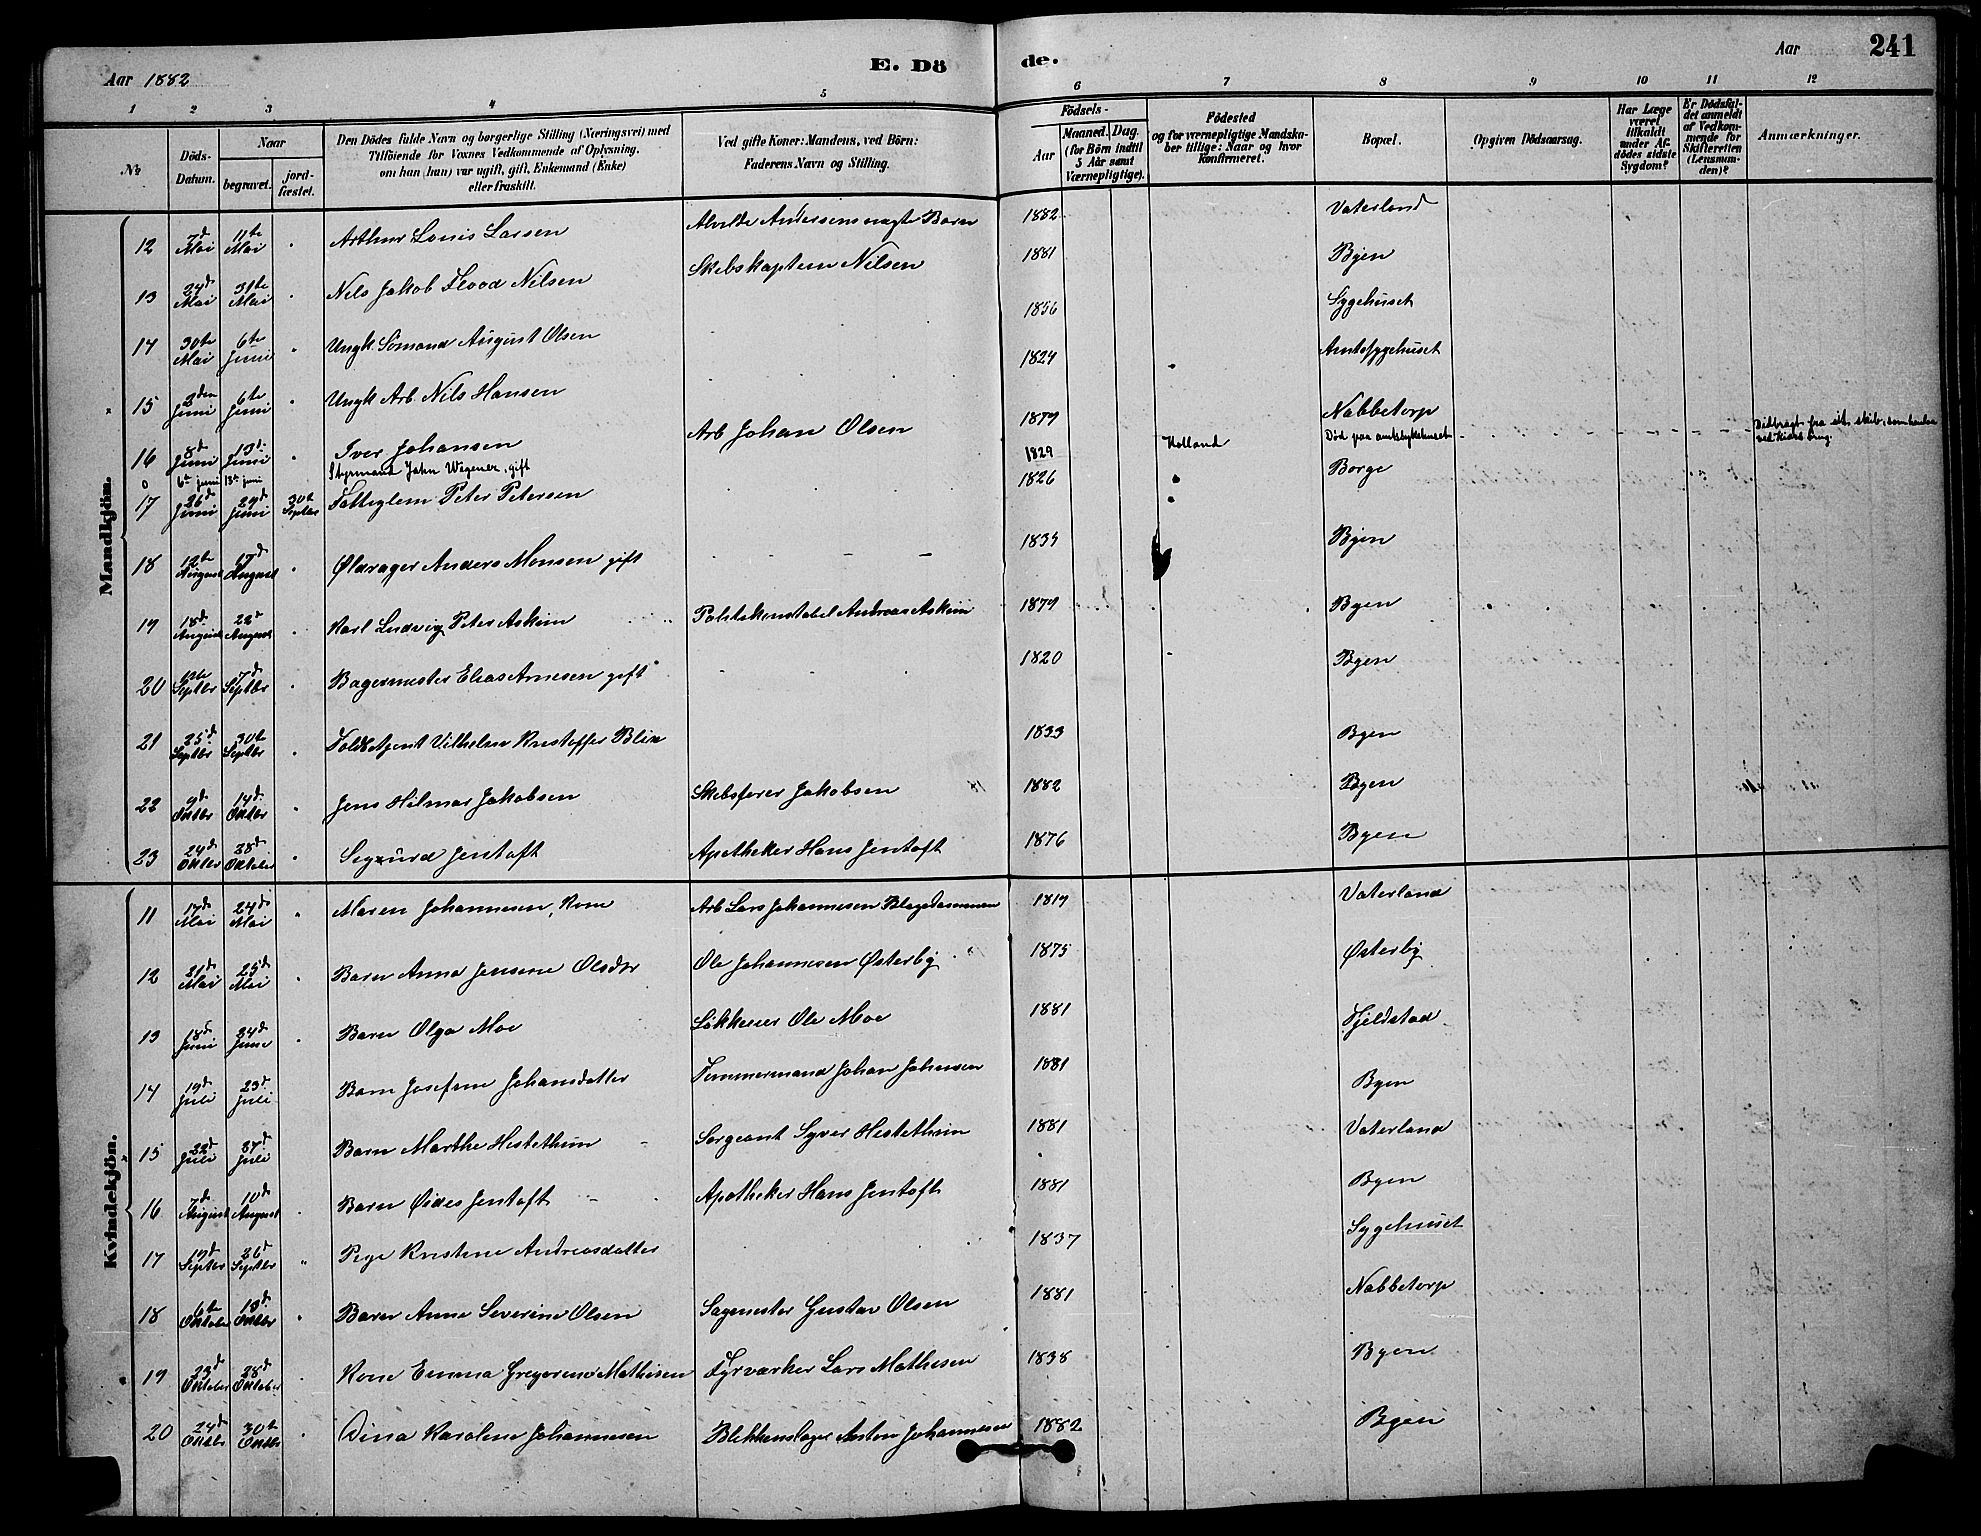 Aar 1882 E. Dö de. Aar 241
1 2 3 4 5 6 7 8 9 10 11 12
№
Döds-Datum.
Naar
begravet.
jord-fæstet.
Den Dödes fulde Navn og borgerlige Stilling (Næringsvei) med
Tilföiende for Voxnes Vedkommende af Oplysning,
om han (hun) var ugift, gift, Enkemand (Enke)
eller fraskilt.
Ved gifte Koner: Mandens, ved Börn:
Faderens Navn og Stilling.
Födsels-
Aar
Maaned. Dag.
(for Börn indtil
5 Aar samt
Værnepligtige).
Födested
og for værnepligtige Mandska-
ber tillige: Naar og hvor
konfirmeret.
Bopæl.
Opgiven Dödsaarsag.
Har Læge
været
tilkaldt
under Af-
dödes sidste
Sygdom?
Er Dödsfal-
det anmeldt
af Vedkom-
mende for
Skifteretten
(Lensman-
den)?
Anmærkninger.
Mandkjön.
12 7d Mai 11te Mai Arthur Louis Larsen Alvilde Andersens uægte Barn 1882 Vaterland
13 24d Mai 31te Mai Nils Jakob Flood Nilsen Skibskaptein Nilsen 1881 Byen
14 30te Mai 6te Juni Ungk. Sömand August Olsen 1856 Sygehuset
15 2den Juni 6te Juni Ungk Arb. Nils Hansen 1824 Amtssygehuset
16 8d Juni 13d Juni Iver Johansen Arb Johan Olsen 1879 Nabbetorp
0 6te juni 13de juni Styrmand Jahn Wegener, gift 1829 Holland Död paa amtssykehuset
17 26d Juni 29d Juni 30te Septbr Fattiglem Peter Petersen 1826 Borge
18 12te August 17d August Øldrager Anders Monsen gift 1835 Byen
19 18d August 22d August Karl Ludvig Peter Askim Politikonstabel Andreas Askim 1879 Byen
20 Septbr 7d Septbr Bagermester Elias Arnesen gift 1820 Byen
21 25d Septbr 30te Septbr Toldbetjent Vilhelm Kristoffer Blix 1833 Byen
22 9d Oktbr 14d Oktbr Jens Hilmar Jakobsen Skibsförer Jakobsen 1882 Byen
23 24d Oktbr 28d Oktober Sigurd Jentoft Apotheker Hans Jentoft 1876 Byen
Kvindekjön.
11 17d Mai 24d Mai Maren Johannesen, Kone Arb Lars Johannesen 1819 Vaterland
12 21d Mai 25d Mai Barn Anna Jensine Olsdtr Ole Johannesen Østerby 1875 Østerby
13 18d Juni 24d June Barn Olga Moe Ole Moe 1881 Fjeldstad
14 19d Juli 23d Juli Barn Josefine Johansdatter Tømmermand Johan Johansen 1881 Byen
15 22d Juli 27d Juli Barn Marthe Hestethun Sergeant Syver Hestethun 1881 Vaterland
16 7d August 10d August Barn Jentoft Apotheker Hans Jentoft 1881 Byen
17 19d Septbr 26d Septbr Pige Kristine Andreasdatter 1837 Sygehuset
18 6te Oktober 13d Oktbr Barn Anne Severine Olsen Sagmester Gustav Olsen 1881 Nabbetorp
19 23d Oktober 28d Oktober Kone Emma Gregorine Mathisen Fyrværker Lars Mathisen 1838 Byen
20 24d Oktbr 30te Oktbr Dina Karoline Johannesen Blikkenslager Anton Johannesen 1882 Byen